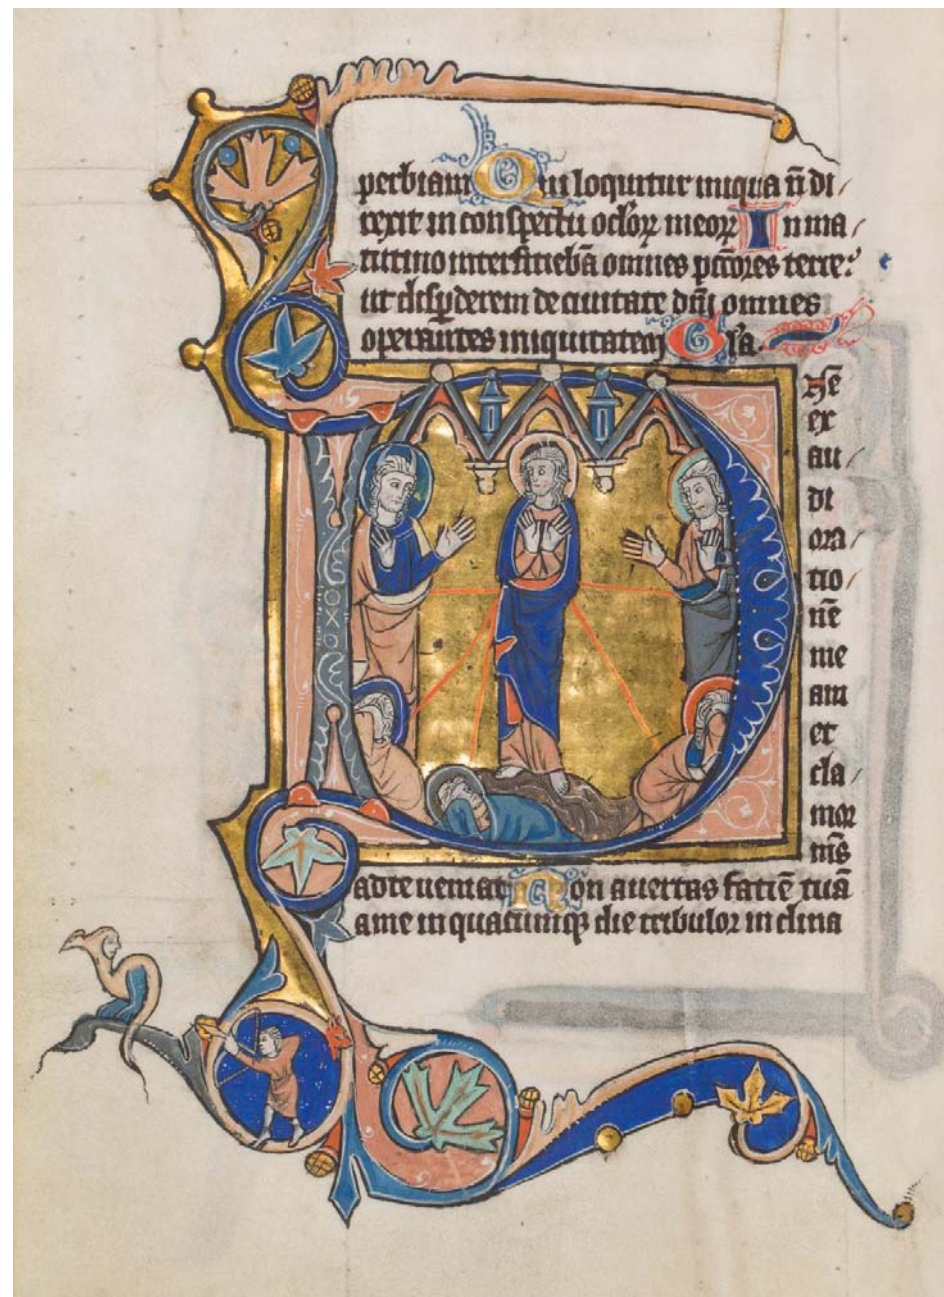 perbiam Qui loquitur iniqua n̄ di
rexit in conspectu oclorꝝ meorꝝ In ma
tutino interficiebā omnes pcc̄ores terre:
ut disperderem de ciuitate dn̄i omnes
operantes iniquitatem Gl'a.
D
n̄e
ex
au
di
ora
tio
nē
me
am
et
cla
mor
m̄s
ad te ueniat Non auertas faciē tuā
a me in quacumqꝫ die tribulor in clina